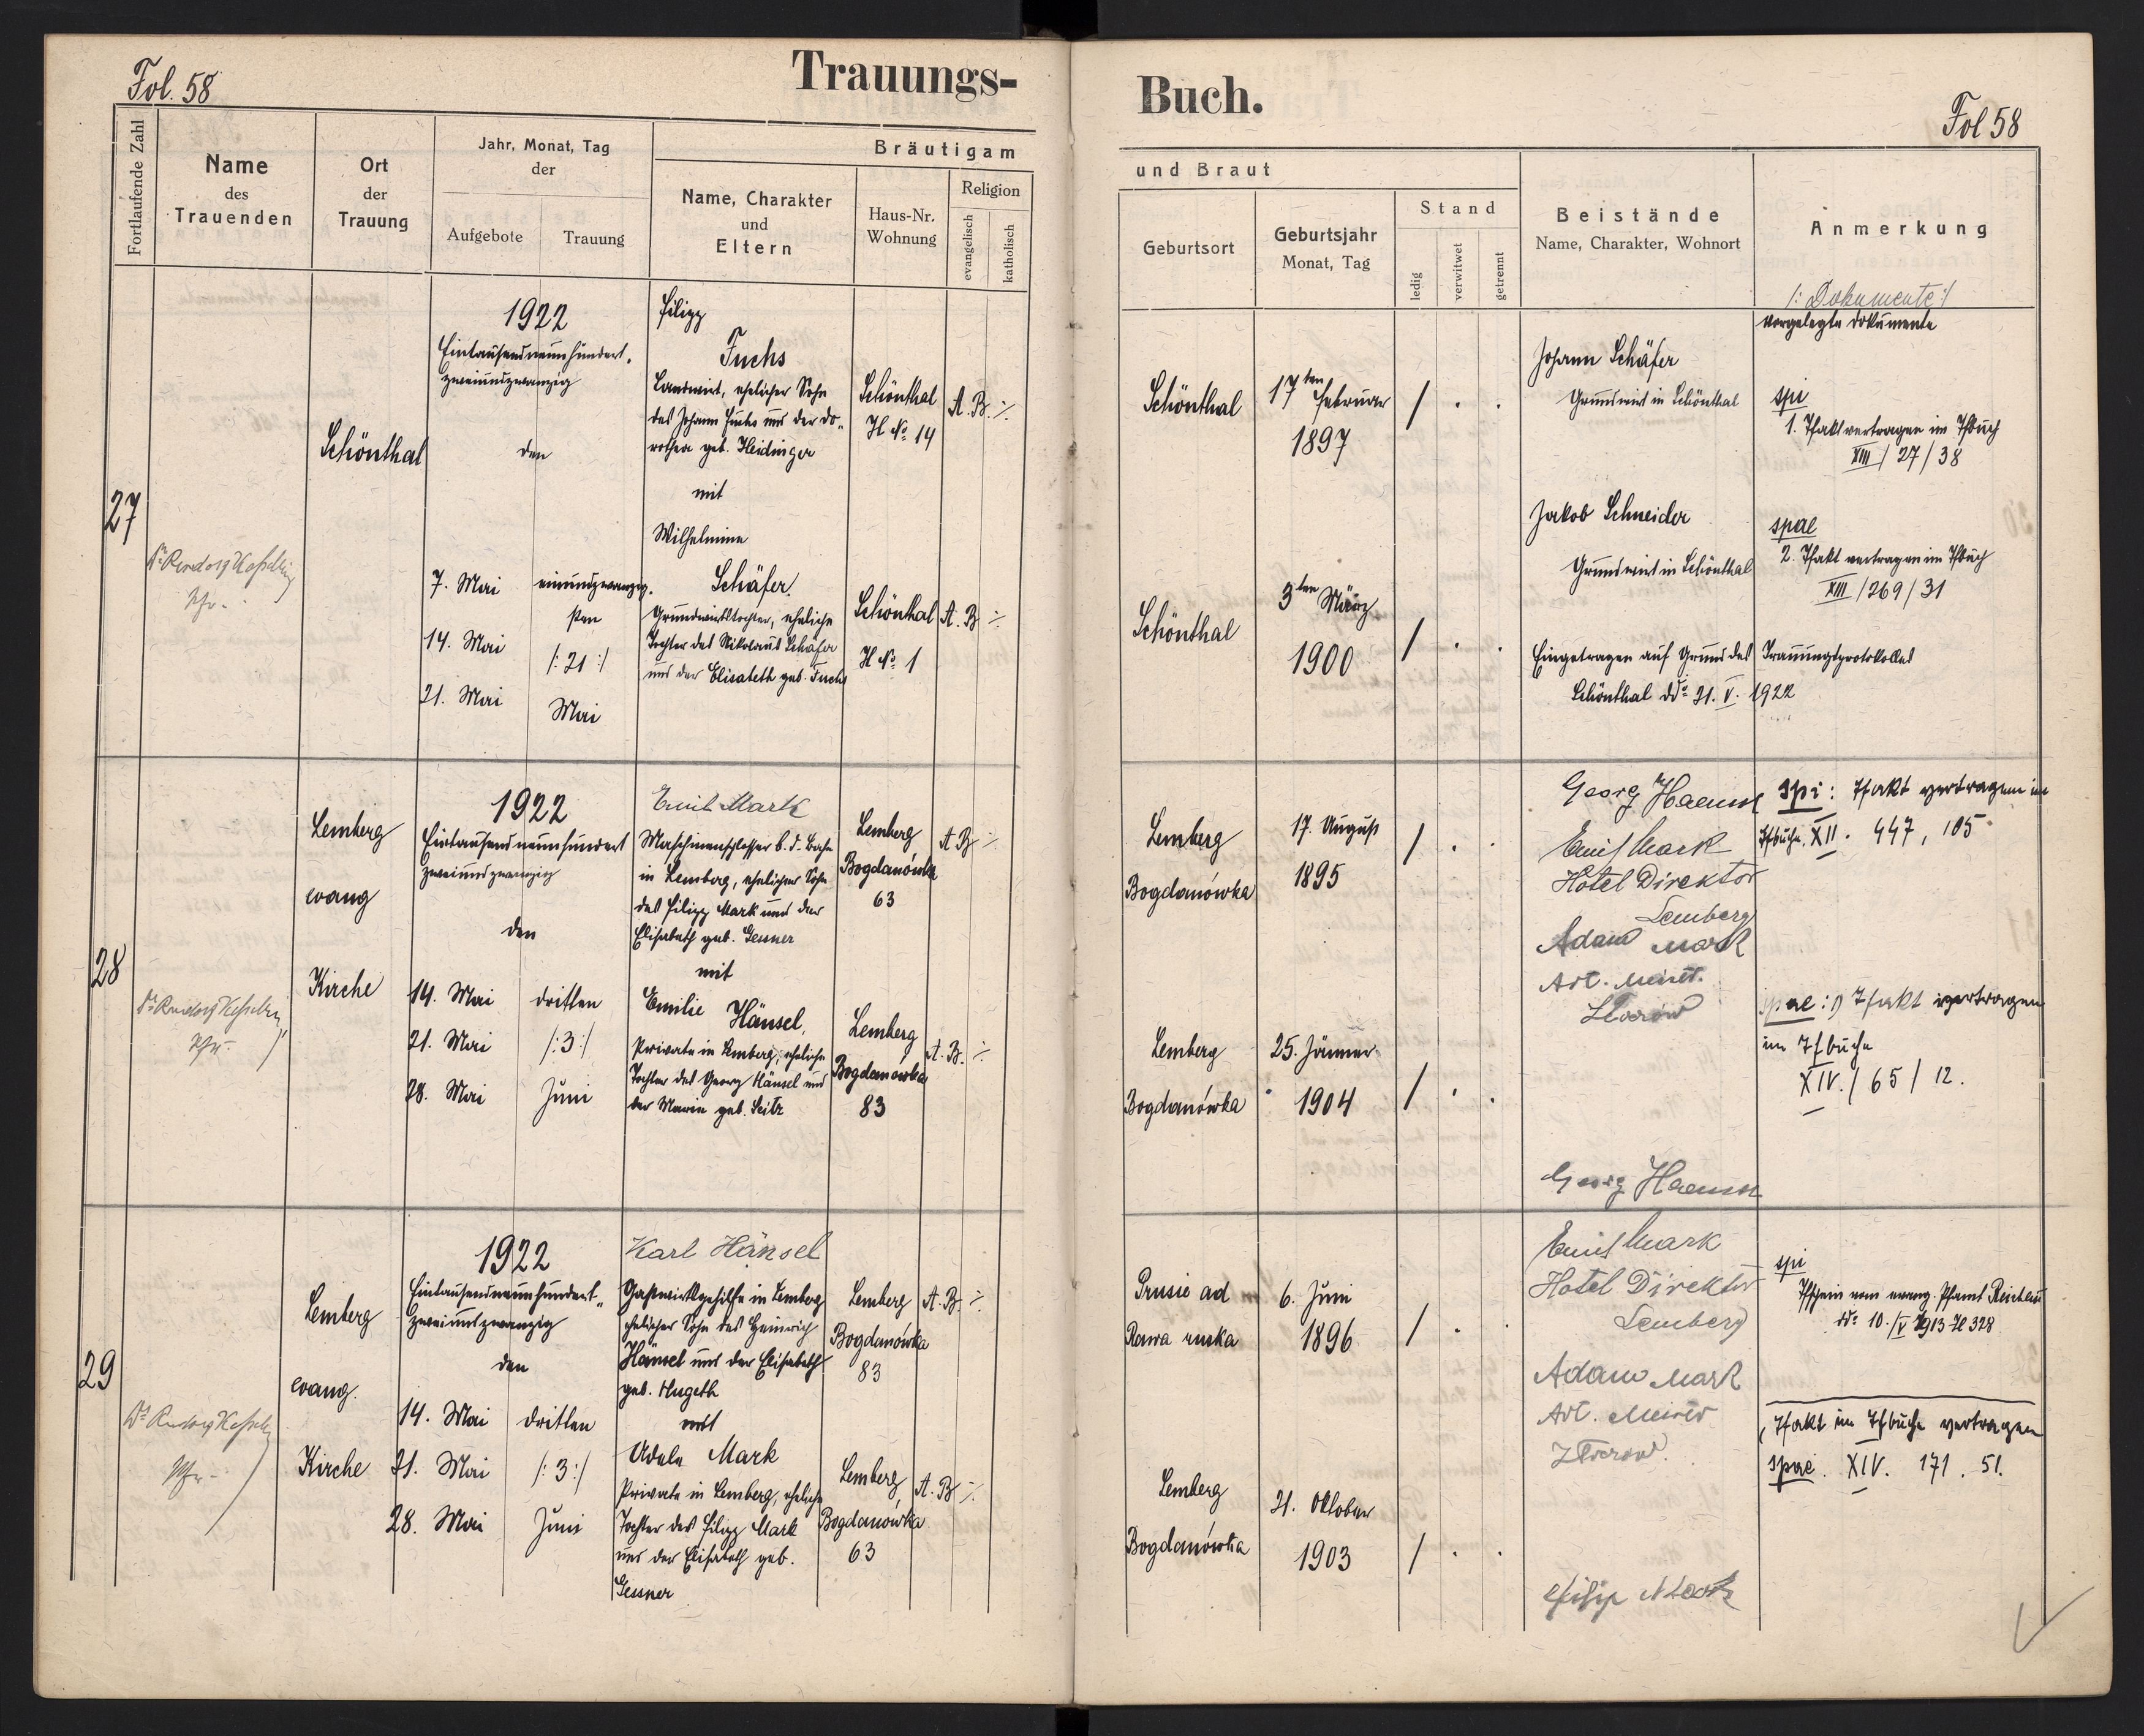 Fol. 58
Trauungs-
Fortlaufende Zahl
Name
des
Trauenden
Ort
der
Trauung
Jahr, Monat, Tag
der
Aufgebote
Trauung
Bräutigam
Name, Charakter
und
Eltern
Haus-Nr.
Wohnung
Religion
evangelisch
katholisch
27
Schönthal
1922
Eintausendneunhundert-
zweiundzwanzig
den
7. Mai
14. Mai
21. Mai
einundzwanzig-
sten
/: 21 :/
Mai
Filipp
Fuchs
Landwirt, ehelicher Sohn
des Johann Fuchs und der Do-
rothea geb. Heidinger
mit
Wilhelmine
Schäfer
Grundwirtstochter, eheliche
Tochter des Nikolaus Schäfer
und der Elisabeth geb. Fuchs
Schönthal
H № 14
A. B.
Schönthal
H № 1
A. B.
28
Lemberg
evang
Kirche
1922
Eintausendneunhundert
zweiundzwanzig
den
14. Mai
21. Mai
28. Mai
dritten
/: 3 :/
Juni
Emil Mark
Maschinenschlosser b. d. Bahn
in Lemberg, ehelicher Sohn
des Filipp Mark und der
Elisabeth geb. Gessner
mit
Emilie Hänsel,
Private in Lemberg, eheliche
Tochter des Georg Hänsel und
der Marie geb. Seitz
Lemberg
Bogdanówka
63
A B
Lemberg
Bogdanówka
83
A. B.
29
Lemberg
evang.
Kirche
1922
Eintausendneunhundert-
zweiundzwanzig
den
14. Mai
21. Mai
28. Mai
dritten
/: 3 :/
Juni
Karl Hänsel
Gastwirtsgehilfe in Lemberg
ehelicher Sohn des Heinrich
Hänsel und der Elisabeth
geb. Hugeth
mit
Adele Mark
Private in Lemberg, eheliche
Tochter des Filipp Mark
und der Elisabeth geb.
Gessner
Lemberg
Bogdanówka
83
A. B.
Lemberg
Bogdanówka
63
A. B
Buch.
Fol 58
und Braut
Geburtsort
Geburtsjahr
Monat, Tag
Stand
ledig
verwitwet
getrennt
Beistände
Name, Charakter, Wohnort
Anmerkung
/: Dokumente :/
Vorgelegte Dokumente
Schönthal
17ten Februar
1897
Johann Schäfer
Grundwirt in Schönthal
spi
1. Tfakt vertragen im Tfbuch
XIII / 27 / 38
Jakob Schneider
Grundwirt in Schönthal
spae
2. Tfakt vertragen im Tfbuch
XIII / 269 / 31
Schönthal
3ten März
1900
Eingetragen auf Grund des Trauungsprotokolles
Schönthal dd° 21. V. 1922
Lemberg
Bogdanówka
17. August
1895
Georg Haensel
Emil Mark
Hotel Direktor
Lemberg
Adam Mark
spi: Tfakt vertragen im
Tfbuche XII. 447, 105
Lemberg
Bogdanówka
25. Jänner
1904
spae: Tfakt vertragen
im Tfbuche
XIV. / 65 / 12.
Georg Haensel
Prusie ad
Rawa ruska
6. Juni
1896
Emil Mark
Hotel Direktor
Lemberg
Adam Mark
spi
Tfschein vom evang. Pfarramt Reichau
dd° 10./V 1913 Zl 328
Tfakt im Tfbuche vertragen
spae. XIV. 171. 51.
Lemberg
Bogdanówka
21. Oktober
1903
Filip Mark